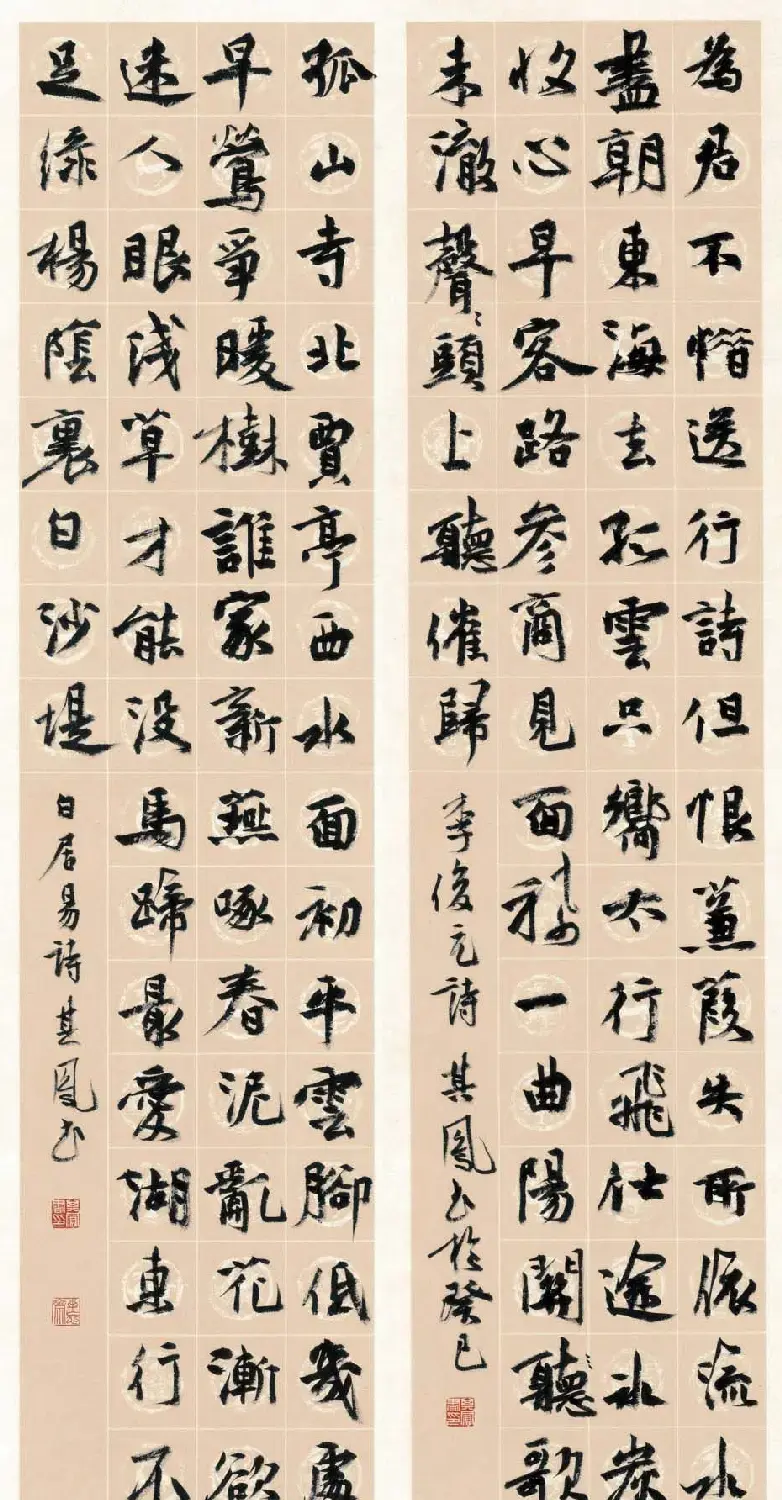 為君不惜送行詩但恨蒹葭失所依流水
盡朝東海去孤雲只嚮太行飛仕途冰炭
收心早客路參商見面稀一曲陽關聽歌
未徹聲〻頭上聽催歸
李俊民詩 其鳳書於癸巳
孤山寺北賈亭西水面初平雲腳低幾處
早鶯爭暖樹誰家新燕啄春泥亂花漸欲
迷人眼淺草才能沒馬蹄最愛湖東行不
足綠楊蔭裏白沙堤
白居易詩其鳳書